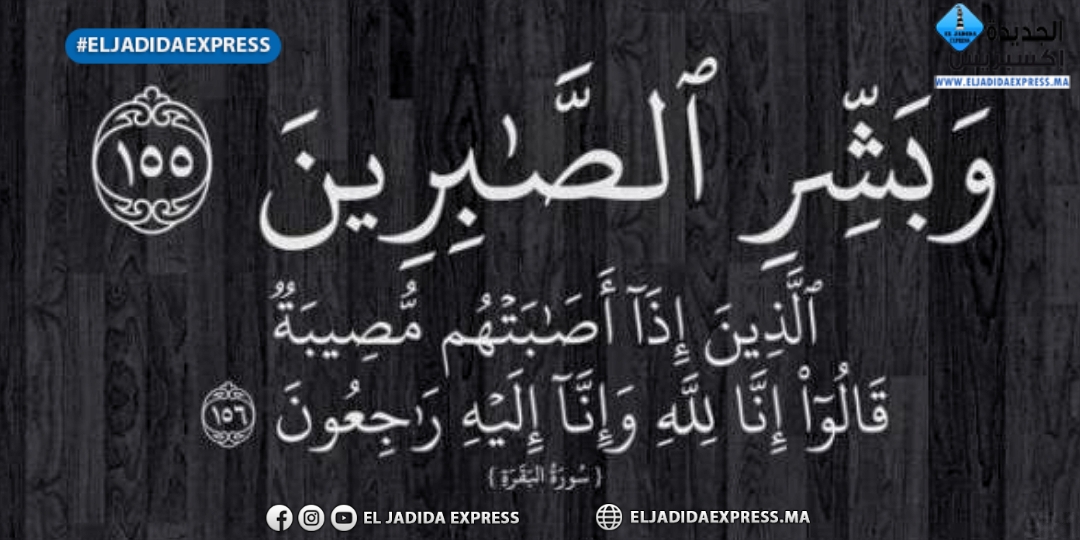 #ELJADIDAEXPRESS
الجديدة
اكسبريس
EL JADIDA
EXPRESS
WWW.ELJADIDAEXPRESS.MA
وَبَشِّرِ ٱلصَّـٰبِرِينَ ١٥٥
ٱلَّذِينَ إِذَآ أَصَـٰبَتْهُم مُّصِيبَةٌ
قَالُوٓا۟ إِنَّا لِلَّهِ وَإِنَّآ إِلَيْهِ رَٰجِعُونَ ١٥٦
{ سُورَةُ البَقَرَةِ }
EL JADIDA EXPRESS
ELJADIDAEXPRESS.MA